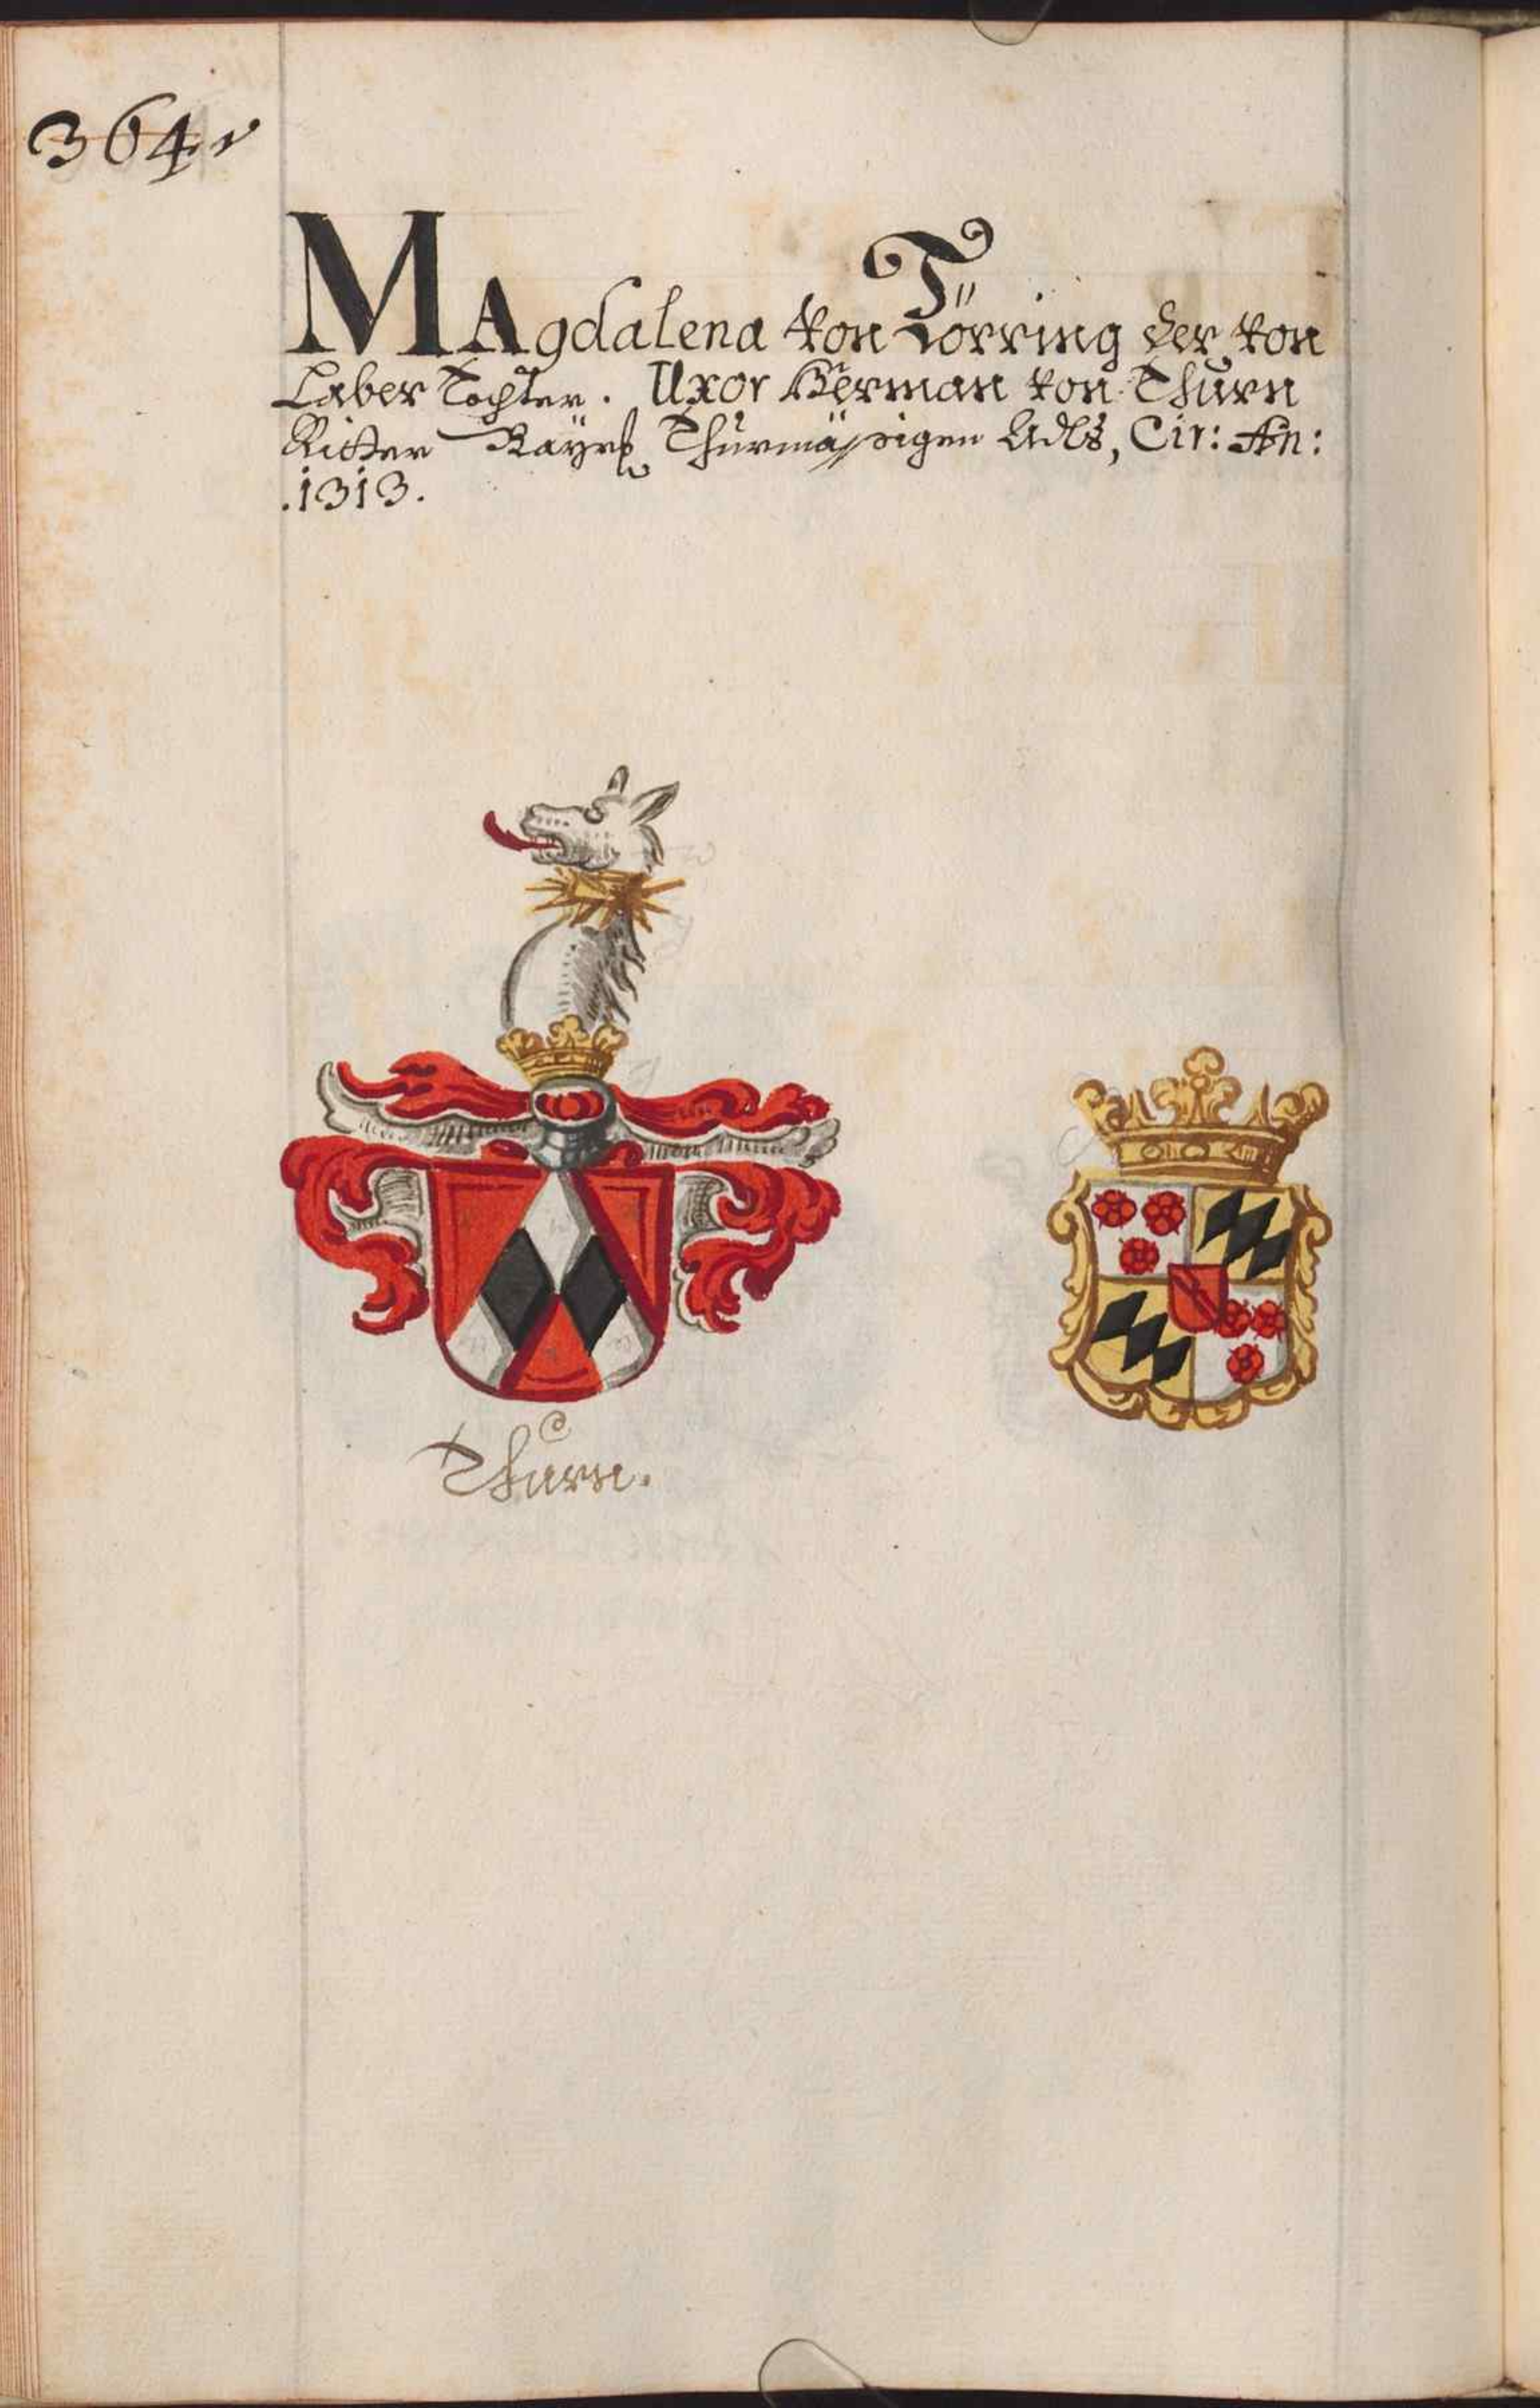 364
MAgdalena von Törring der von
Laber Tochter. Uxor Herman von Thurn
Ritter Thurmässigen Adls, Cir: An:
.1313.
Thurn.